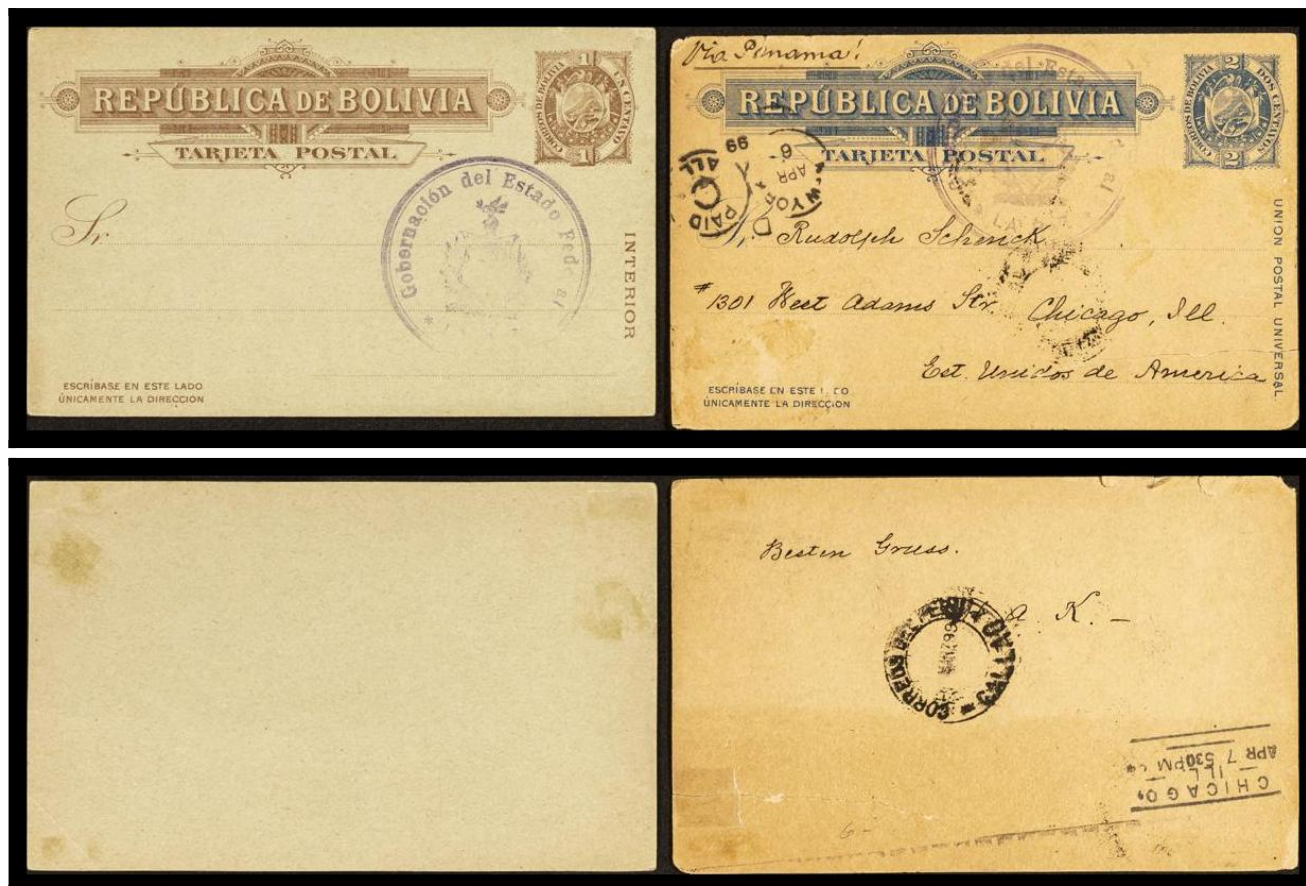 REPÚBLICA DE BOLIVIA
TARJETA POSTAL
CORREOS DE BOLIVIA
UN CENTAVO
1 1
1 1
Sr.
Gobernación del Estado Federal
INTERIOR
ESCRÍBASE EN ESTE LADO
ÚNICAMENTE LA DIRECCION
Via Panama!
REPÚBLICA DE BOLIVIA
TARJETA POSTAL
CORREOS DE BOLIVIA
DOS CENTAVOS
2 2
2 2
del Esta
al
LA PAZ
NEW YORK
APR
6
99
PAID
ALL
Sr. Rudolph Schenck
#1301 West Adams Str. Chicago, Ill.
Est. Unidos de America
UNION POSTAL UNIVERSAL.
ESCRÍBASE EN ESTE LADO
ÚNICAMENTE LA DIRECCION
Besten Gruss.
K.
CORREOS DEL PERU
CALLAO
CHICAGO,
ILL
APR 7 530PM
6-